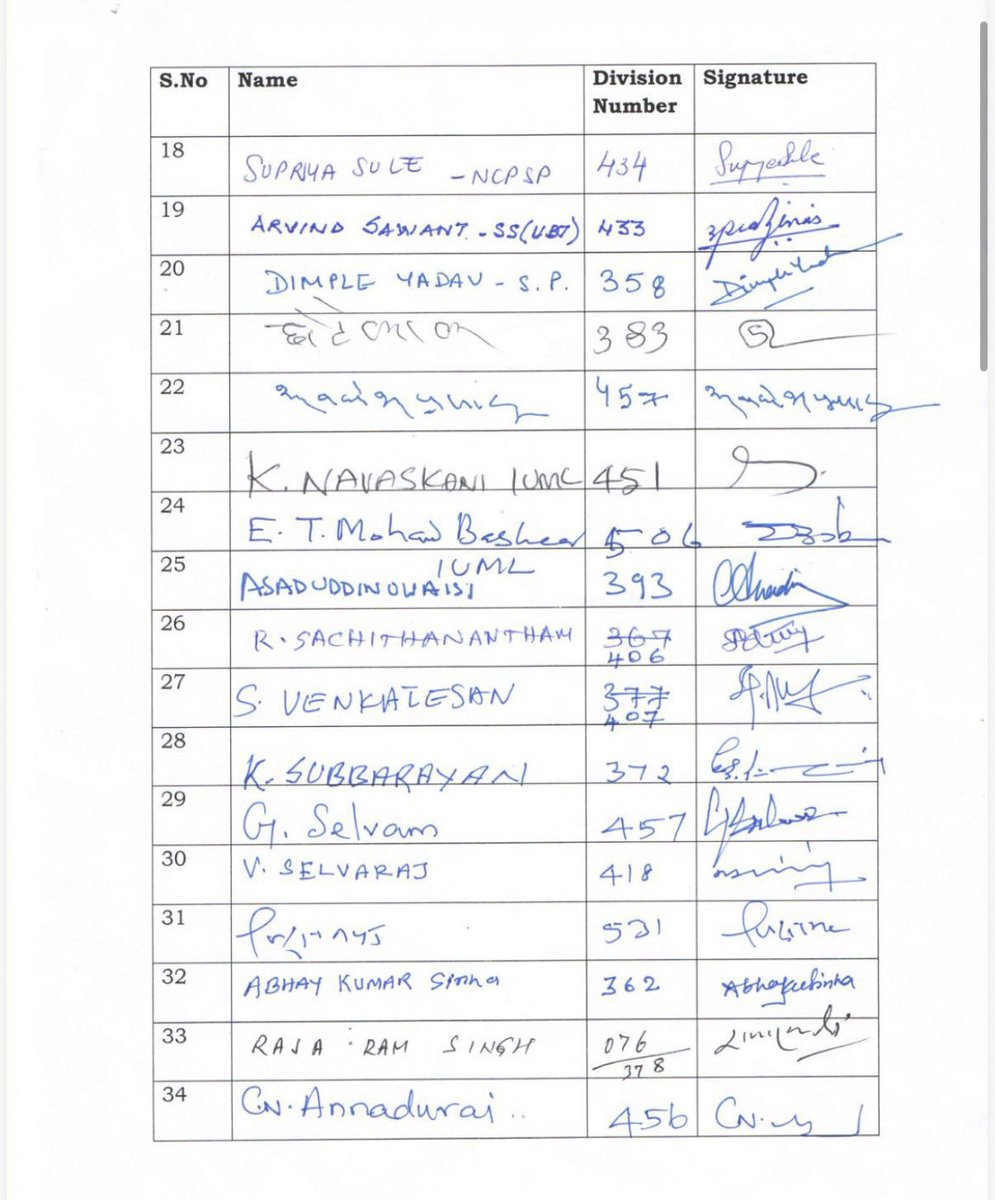 S.No Name Division Number Signature
18 SUPRIYA SULE - NCPSP 434
19 ARVIND SAWANT - SS(UBT) 433
20 DIMPLE YADAV - S.P. 358
21 छोटेलाल 383
22 457
23 K. NAVASKANI IUML 451
24 E. T. Mohad Basheer 506
IUML
25 ASADUDDIN OWAISI 393
26 R. SACHITHANANTHAM 367
406
27 S. VENKATESAN 377
407
28 K. SUBBARAYAN 372
29 G. Selvam 457
30 V. SELVARAJ 418
31 531
32 ABHAY KUMAR Sinha 362 Abhaykr Sinha
33 RAJA RAM SINGH 076
378
34 CN. Annadurai .. 456 CN.